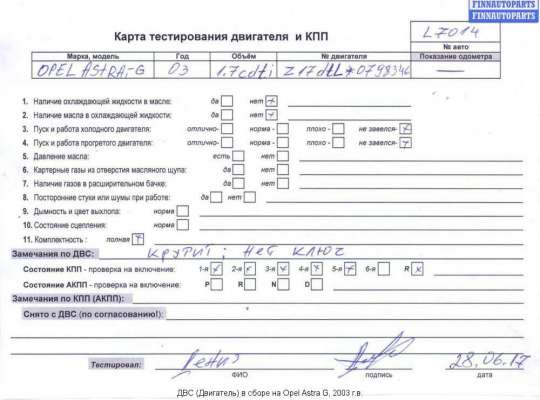 FINNAUTOPARTS
FINNAUTOPARTS
Карта тестирования двигателя и КПП
L7014
№ авто
Марка, модель Год Объём № двигателя Показание одометра
OPEL ASTRA-G 03 1.7cdti Z17dtL*0798346 —
1. Наличие охлаждающей жидкости в масле: да нет
2. Наличие масла в охлаждающей жидкости: да нет
3. Пуск и работа холодного двигателя: отлично- норма - плохо - не завелся-
4. Пуск и работа прогретого двигателя: отлично- норма - плохо - не завелся-
5. Давление масла: есть нет
6. Картерные газы из отверстия масляного щупа: да нет
7. Наличие газов в расширительном бачке: да нет
8. Посторонние стуки или шумы при работе: да нет
9. Дымность и цвет выхлопа: норма
10. Состояние сцепления: норма
11. Комплектность : полная
Замечания по ДВС: крутит; нет ключ
Состояние КПП - проверка на включение: 1-я 2-я 3-я 4-я 5-я 6-я R
Состояние АКПП - проверка на включение: P R N D
Замечания по КПП (АКПП):
Снято с ДВС (по согласованию!):
Тестировал: 28.06.17
ФИО подпись дата
ДВС (Двигатель) в сборе на Opel Astra G, 2003 г.в.